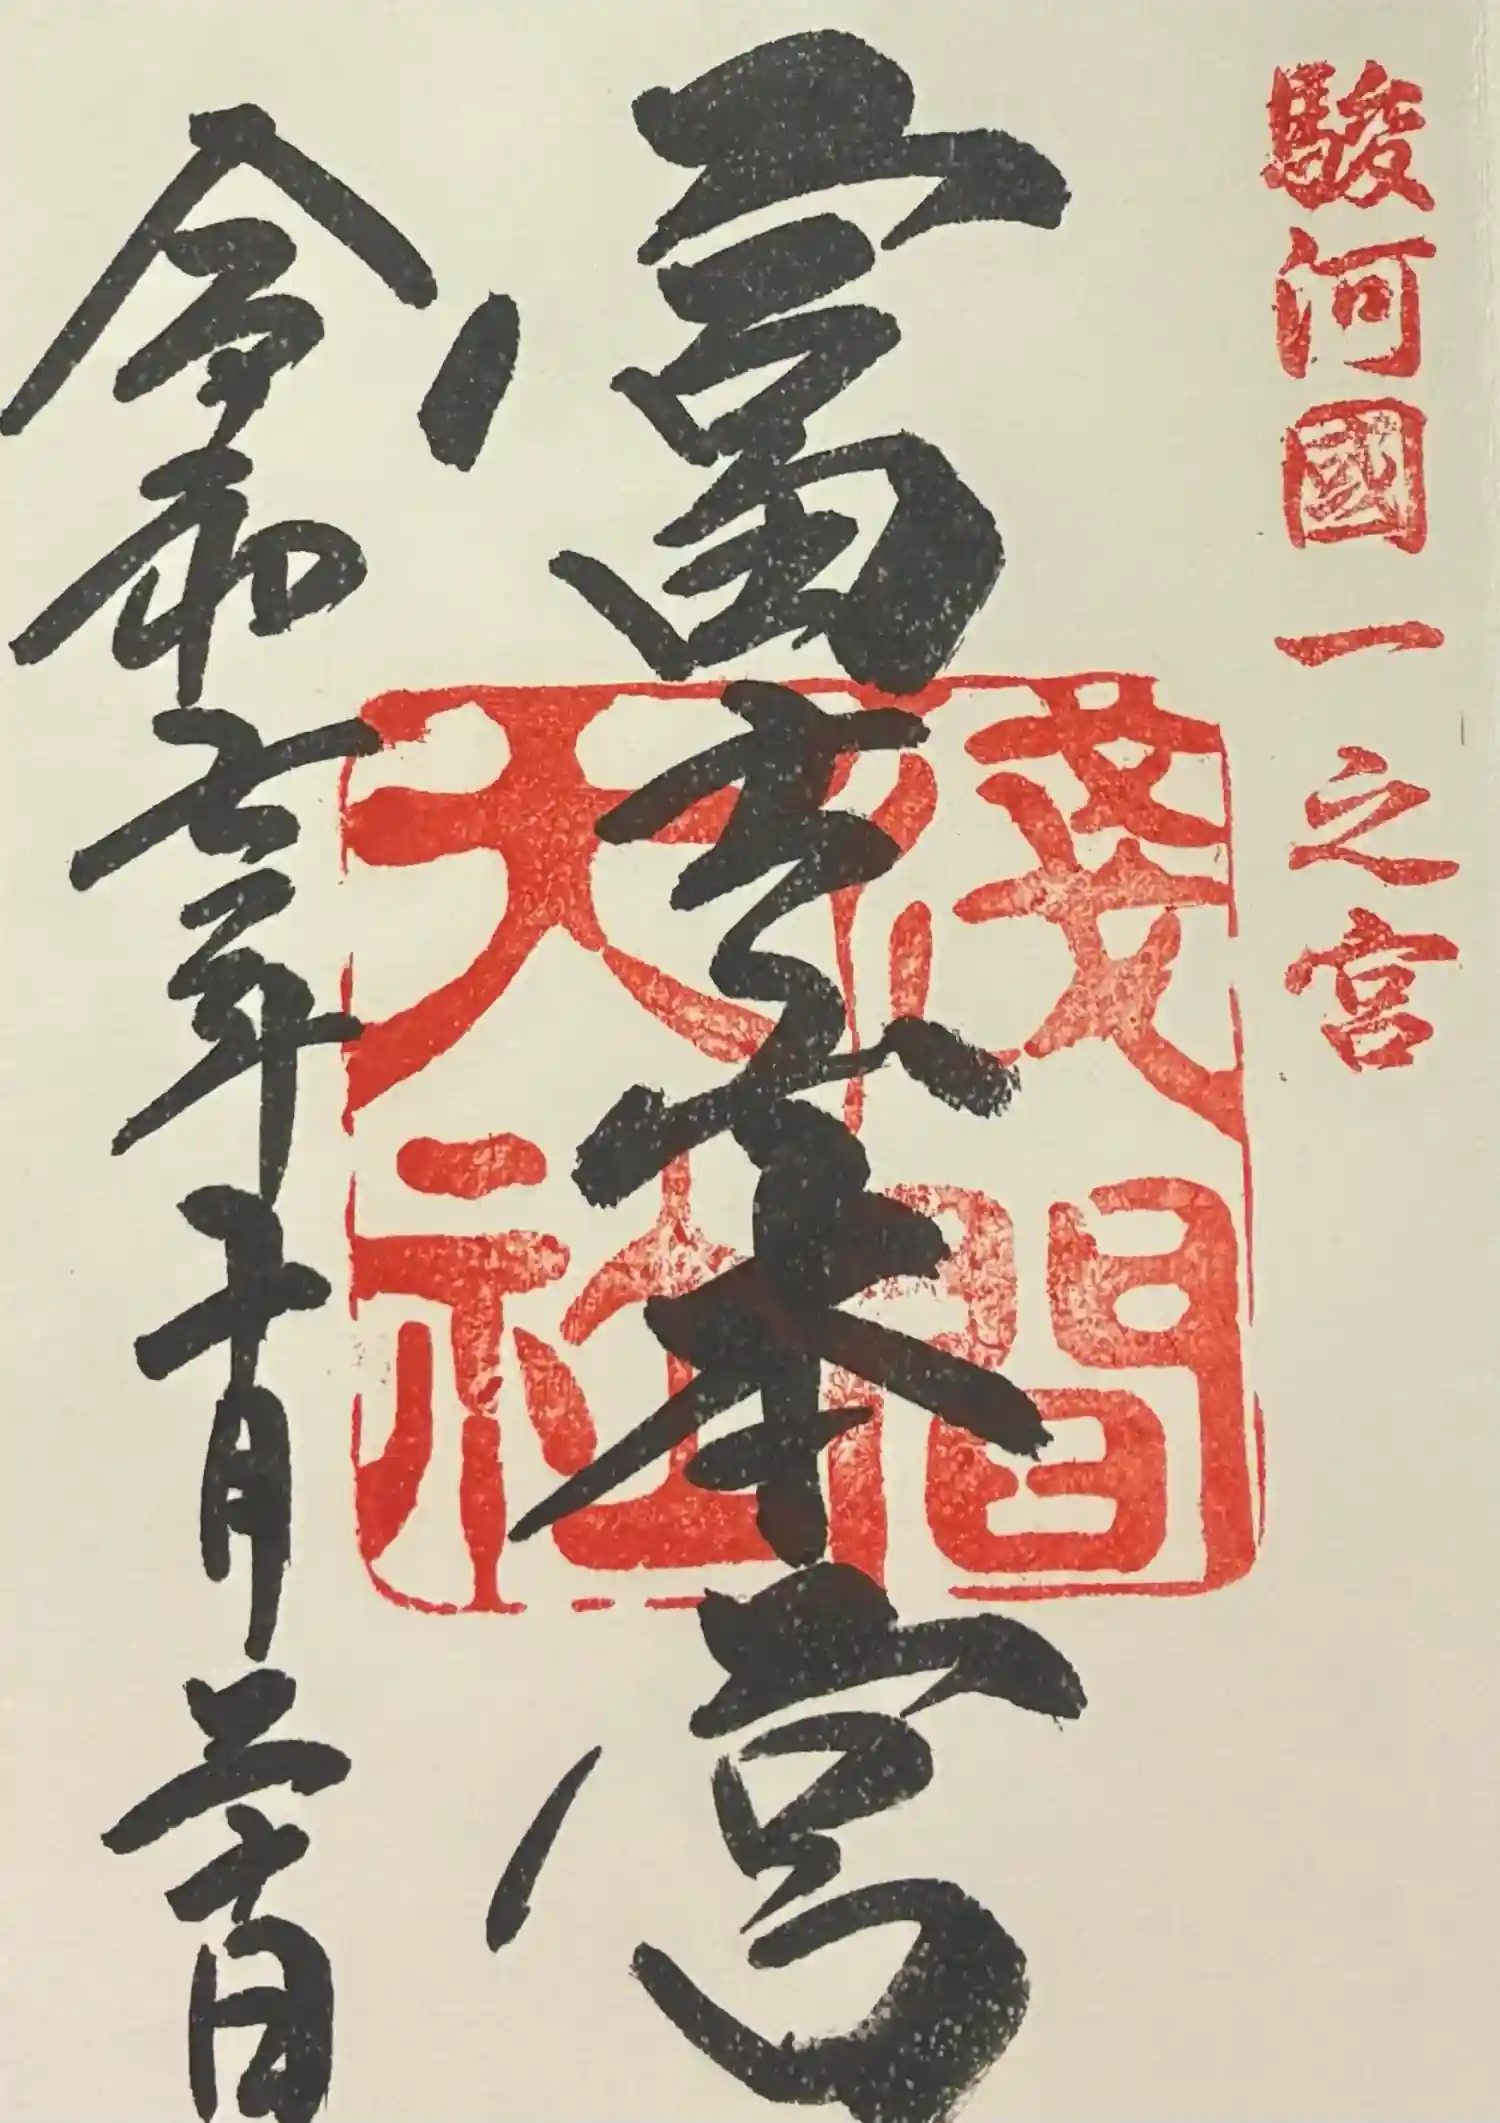 駿河國一之宮
富士山本宮
淺間大社
令和七年十月二十日